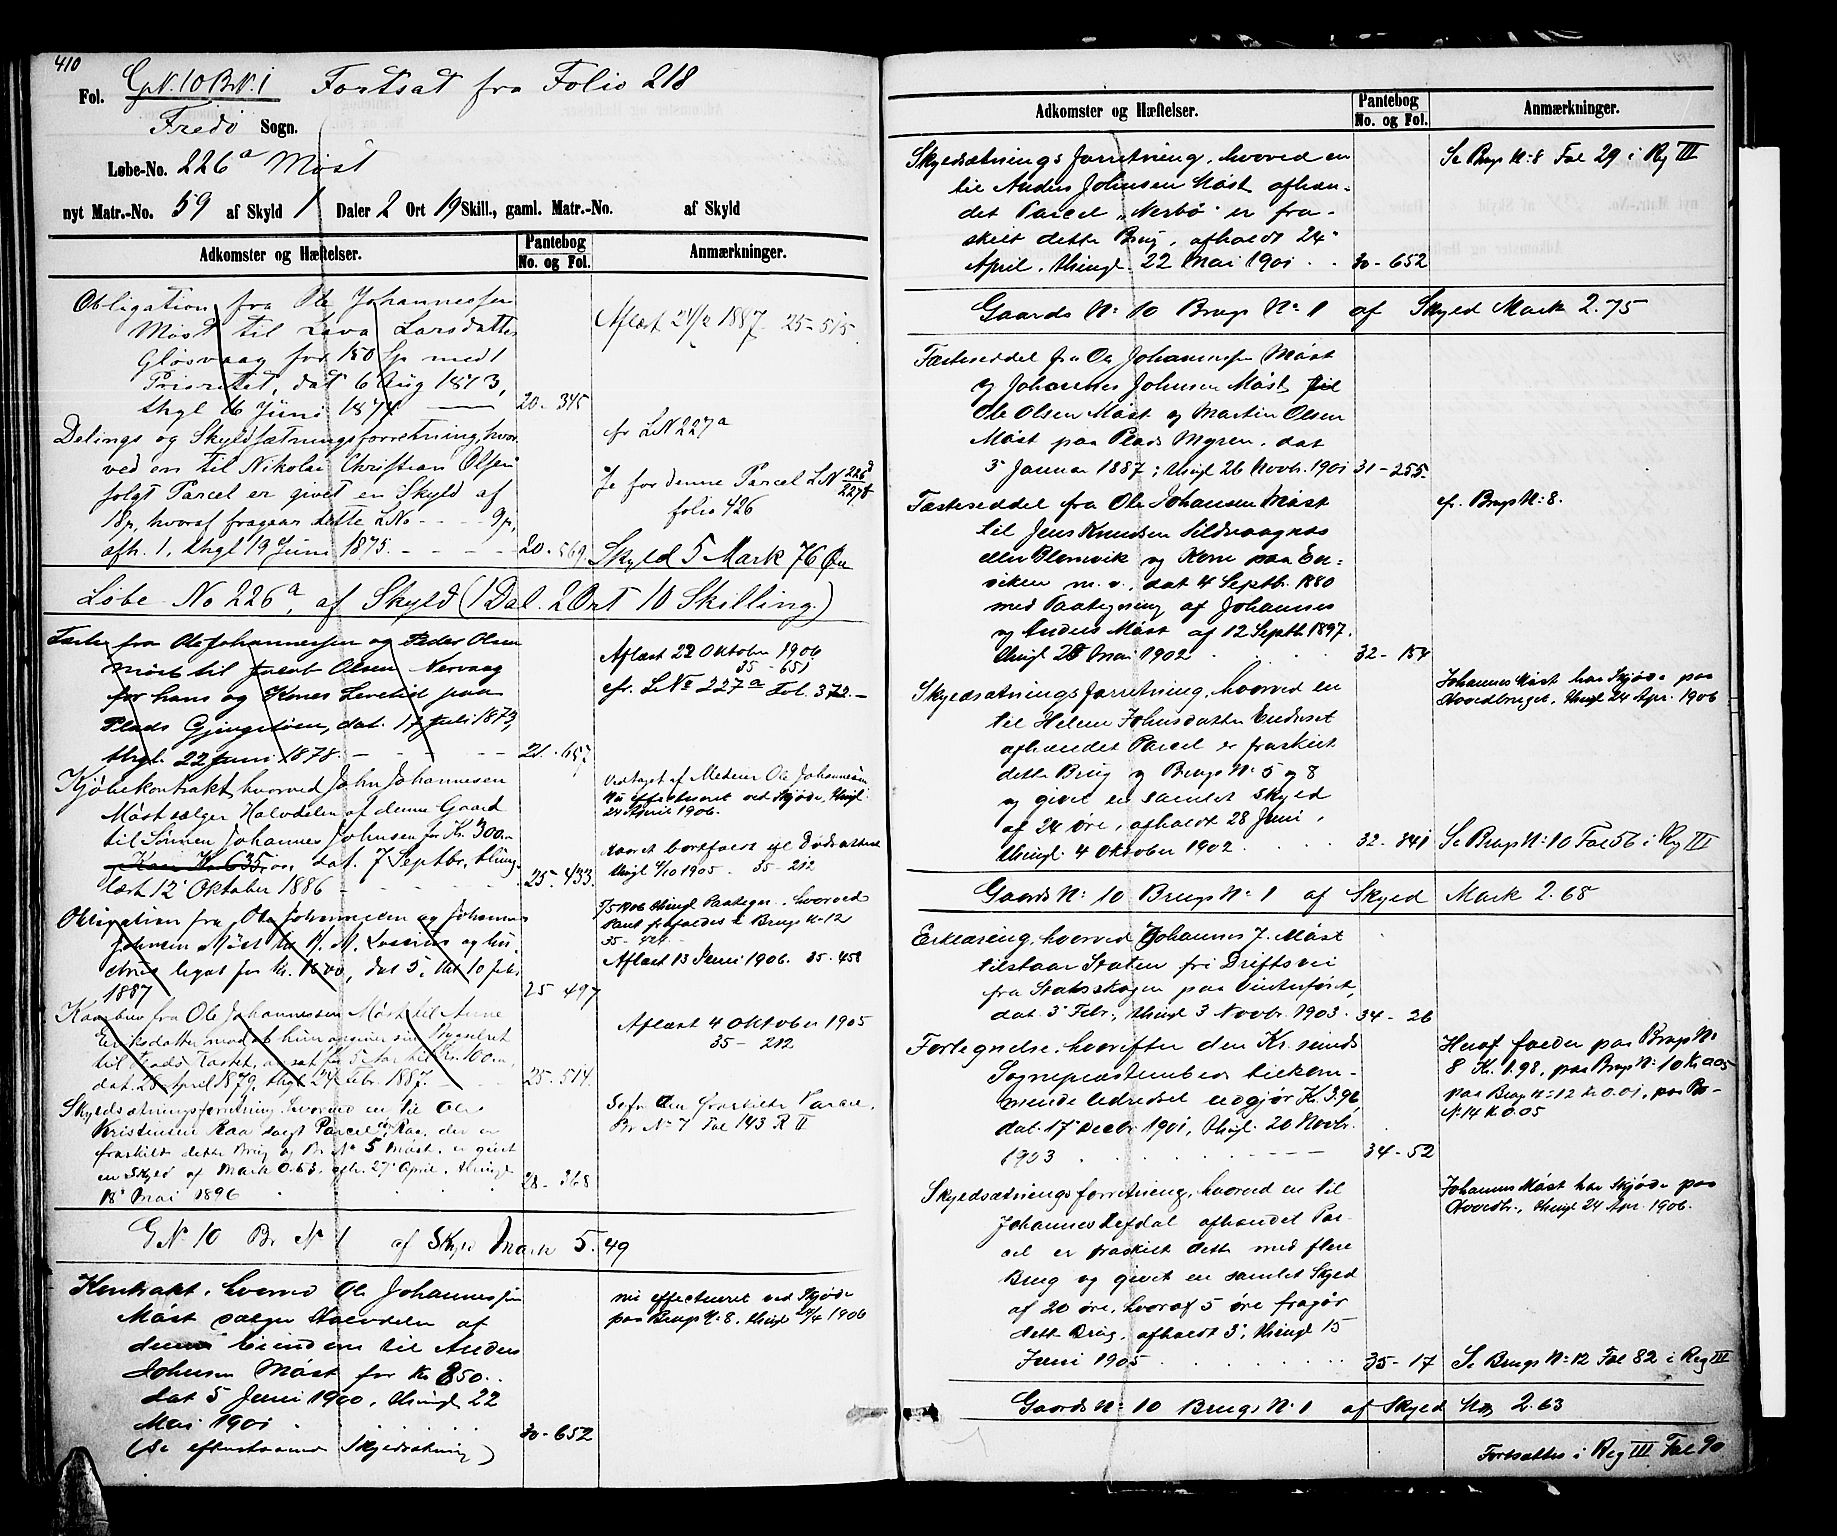 410
Fol. GN. 10 BrN. 1 Fortsat fra Folio 218
Fredø Sogn.
Løbe-No. 226a Møst
nyt Matr.-No. 59 af Skyld 1 Daler 2 Ort 19 Skill., gaml. Matr.-No. af Skyld
Adkomster og Hæftelser. Pantebog No. og Fol. Anmærkninger.
Obligation fra Ole Johannessen
Møst til Lava Larsdatter
Gløsvaag for 150 Sp med 1
Prioritet, dat 6 Aug 1873,
thgl 16 Juni 1874 — 20-345
Aflæst 24/2 1887 25-515
Delings og Skyldsætningsforretning, hvor
ved en til Nikolai Christian Olsen
solgt Parcel er givet en Skyld af
18 p, hvoraf fragaar dette LNo - - - 9p,
afh. 1, thgl 19 Juni 1875. - - - 20-569
cfr LN 227a
Se for denne Parcel LN 226d/227f
folio 426
Skyld 5 Mark 76 Øre
Løbe No 226a, af Skyld (1 Dal. 2 Ort 10 Skilling.)
Fæste fra Ole Johannessen og Peder Olsen
Møst til Jacob Olsen Nervaag
for hans og Kones Levetid paa
Plads Gjengstøen, dat. 17 Juli 1873,
thgl. 22 Juni 1878. - - - 21-657
Aflæst 22 Oktober 1906
35-651
cfr. LNo 227a Fol. 372.-
Kjøbekontrakt hvorved John Johannesen
Møst sælger Halvdelen af denne Gaard
til Sønnen Johannes Johnsen for Kr. 300.-
Kaar Kr. 635,00, dat. 7 Septbr, thing-
læst 12 Oktober 1886 - - - 25-433
vedtaget af Medeier Ole Johannesen
nu effectueret ved Skjøde, thingl.
24 April 1906.
Kaaret bortfaldt ifl Dødsattest
thingl 4/10 1905. 35-212
Obligation fra Ole Johannessen og Johannes
Johnsen Møst til N. M. Lossius og hu-
strues legat for Kr. 1600, dat 5, thl 10 febr.
1887 25-497
1/5 1906 thingl Paategn. hvorved
Pant frafaldes i Brugs N: 12
35-424
Aflæst 13 Juni 1906. 35-458
Kaarbrev fra Ole Johannessen Møst til Anne
Eriksdatter mod at hun opgiver sin Bygselret
dat. 28 April 1879, thgl 24 Febr. 1887. 25-514
Aflæst 4 Oktober 1905
35-212
Skyldsætningsforretning hvorved en til Ole
Kristensen Raa solgt Parcel Raa, der er
fraskilt dette Brug og Br N. 5 Møst, er givet
en Skyld af Mark 0.63. afh. 27 April, thingl
18 Mai 1896 28-368
Se for den fraskilte Parcel,
Br N: 7 Fol 143 R II
G N 10 Br N 1 af Skyld Mark 5.49
Kontrakt, hvorved Ole Johannessen
Møst sælger Halvdelen af
denne Eiendom til Anders
Johnsen Møst for Kr 850..
dat 5 Juni 1900, thingl. 22
Mai 1901 30-652
(Se efterstaaende Skyldsætning)
nu effectueret ved Skjøde
paa Brugs N: 8, thingl 24/4 1906
Adkomster og Hæftelser. Pantebog No. og Fol. Anmærkninger.
Skyldsætningsforretning, hvorved en
til Anders Johnsen Møst afhæn-
det Parcel „Nerbø" er fra-
skilt dette Brug, afholdt 24
April, thingl. 22 Mai 1901 .. 30-652
Se Brugs N: 8 Fol 29 i Reg III
Gaards N: 10 Brugs N: 1 af Skyld Mark 2.75
Fæsteseddel fra Ole Johannessen Møst
og Johannes Johnsen Møst til
Ole Olsen Møst og Martin Olsen
Møst paa Plads Myren, dat
3 Januar 1887; thingl 26 Novbr. 1901 31-255
Fæsteseddel fra Ole Johansen Møst
til Jens Knudsen Sildvaagnes
eller Blomvik og Kone paa En-
viken m.v., dat 4 Septbr. 1880
med Paategning af Johannes
og Anders Møst af 12 Septb. 1897.
thingl 28 Mai 1902 32-154
cfr. Brugs N: 8.
Skyldsætningsforretning, hvorved en
til Helene Johnsdatter Enduset
afhændet Parcel er fraskilt
dette Brug og Brugs N: 5 og 8
og givet en samlet Skyld
af 24 øre, afholdt 28 Juni,
thingl. 4 Oktober 1902 32-841
Johannes Møst har Skjøde paa
Hovedbruget, thingl 24 Apr. 1906
Se Brugs N: 10 Fol 56 i Reg III
Gaards N: 10 Brugs N: 1 af Skyld Mark 2.68
Erklæring, hvorved Johannes J. Møst
tilstaar Staten fri Driftsvei
fra Statsskogen paa Vinterføret,
dat. 3 Febr., thingl 3 Novbr. 1903. 34-26
Fortegnelse, hvorefter den Kr.sunds
Sognepræstembed tilkom-
mende Udredsel udgjør K. 3.96
dat. 17 Decbr 1901, thingl. 20 Novbr.
1903 34-52
Heraf falder paa Brugs N:
8 Kr. 1.98, paa Brugs N: 10 Kr 0.05
paa Brugs N: 12 Kr 0.01, paa Br
N. 14 K 0.05
Skyldsætningsforretning, hvorved en til
Johannes Refdal afhændet Par-
cel er fraskilt dette med flere
Brug og givet en samlet Skyld
af 20 øre, hvoraf 5 øre fragaar
dette Brug, afholdt 3, thingl 15
Juni 1905 35-17
Johannes Møst har Skjøde paa
Hovedbr., thingl 24 Apr. 1906.
Se Brugs N: 12 Fol 82 i Reg III
Gaards N: 10 Brugs N: 1 af Skyld Mk 2.63
Fortsættes i Reg III Fol 90